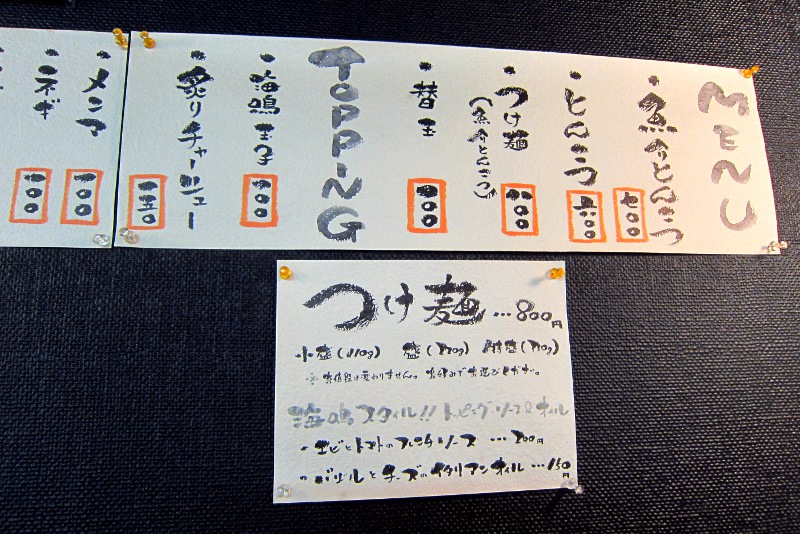 MENU
・魚介とんこつ
七〇〇
・とんこつ
六〇〇
・つけ麺
(魚介とんこつ)
八〇〇
・替玉
一〇〇
TOPPING
・海鳴玉子
一〇〇
・炙りチャーシュー
一五〇
・メンマ
一〇〇
・ネギ
一〇〇
つけ麺…800円
小盛(110g) 並盛(220g) 特盛(330g)
※お値段は変わりません。お好みでお選びください。
海鳴スタイル!! トッピングソース&オイル
・エビとトマトのフレンチソース …200円
・バジルとチーズのイタリアンオイル …150円